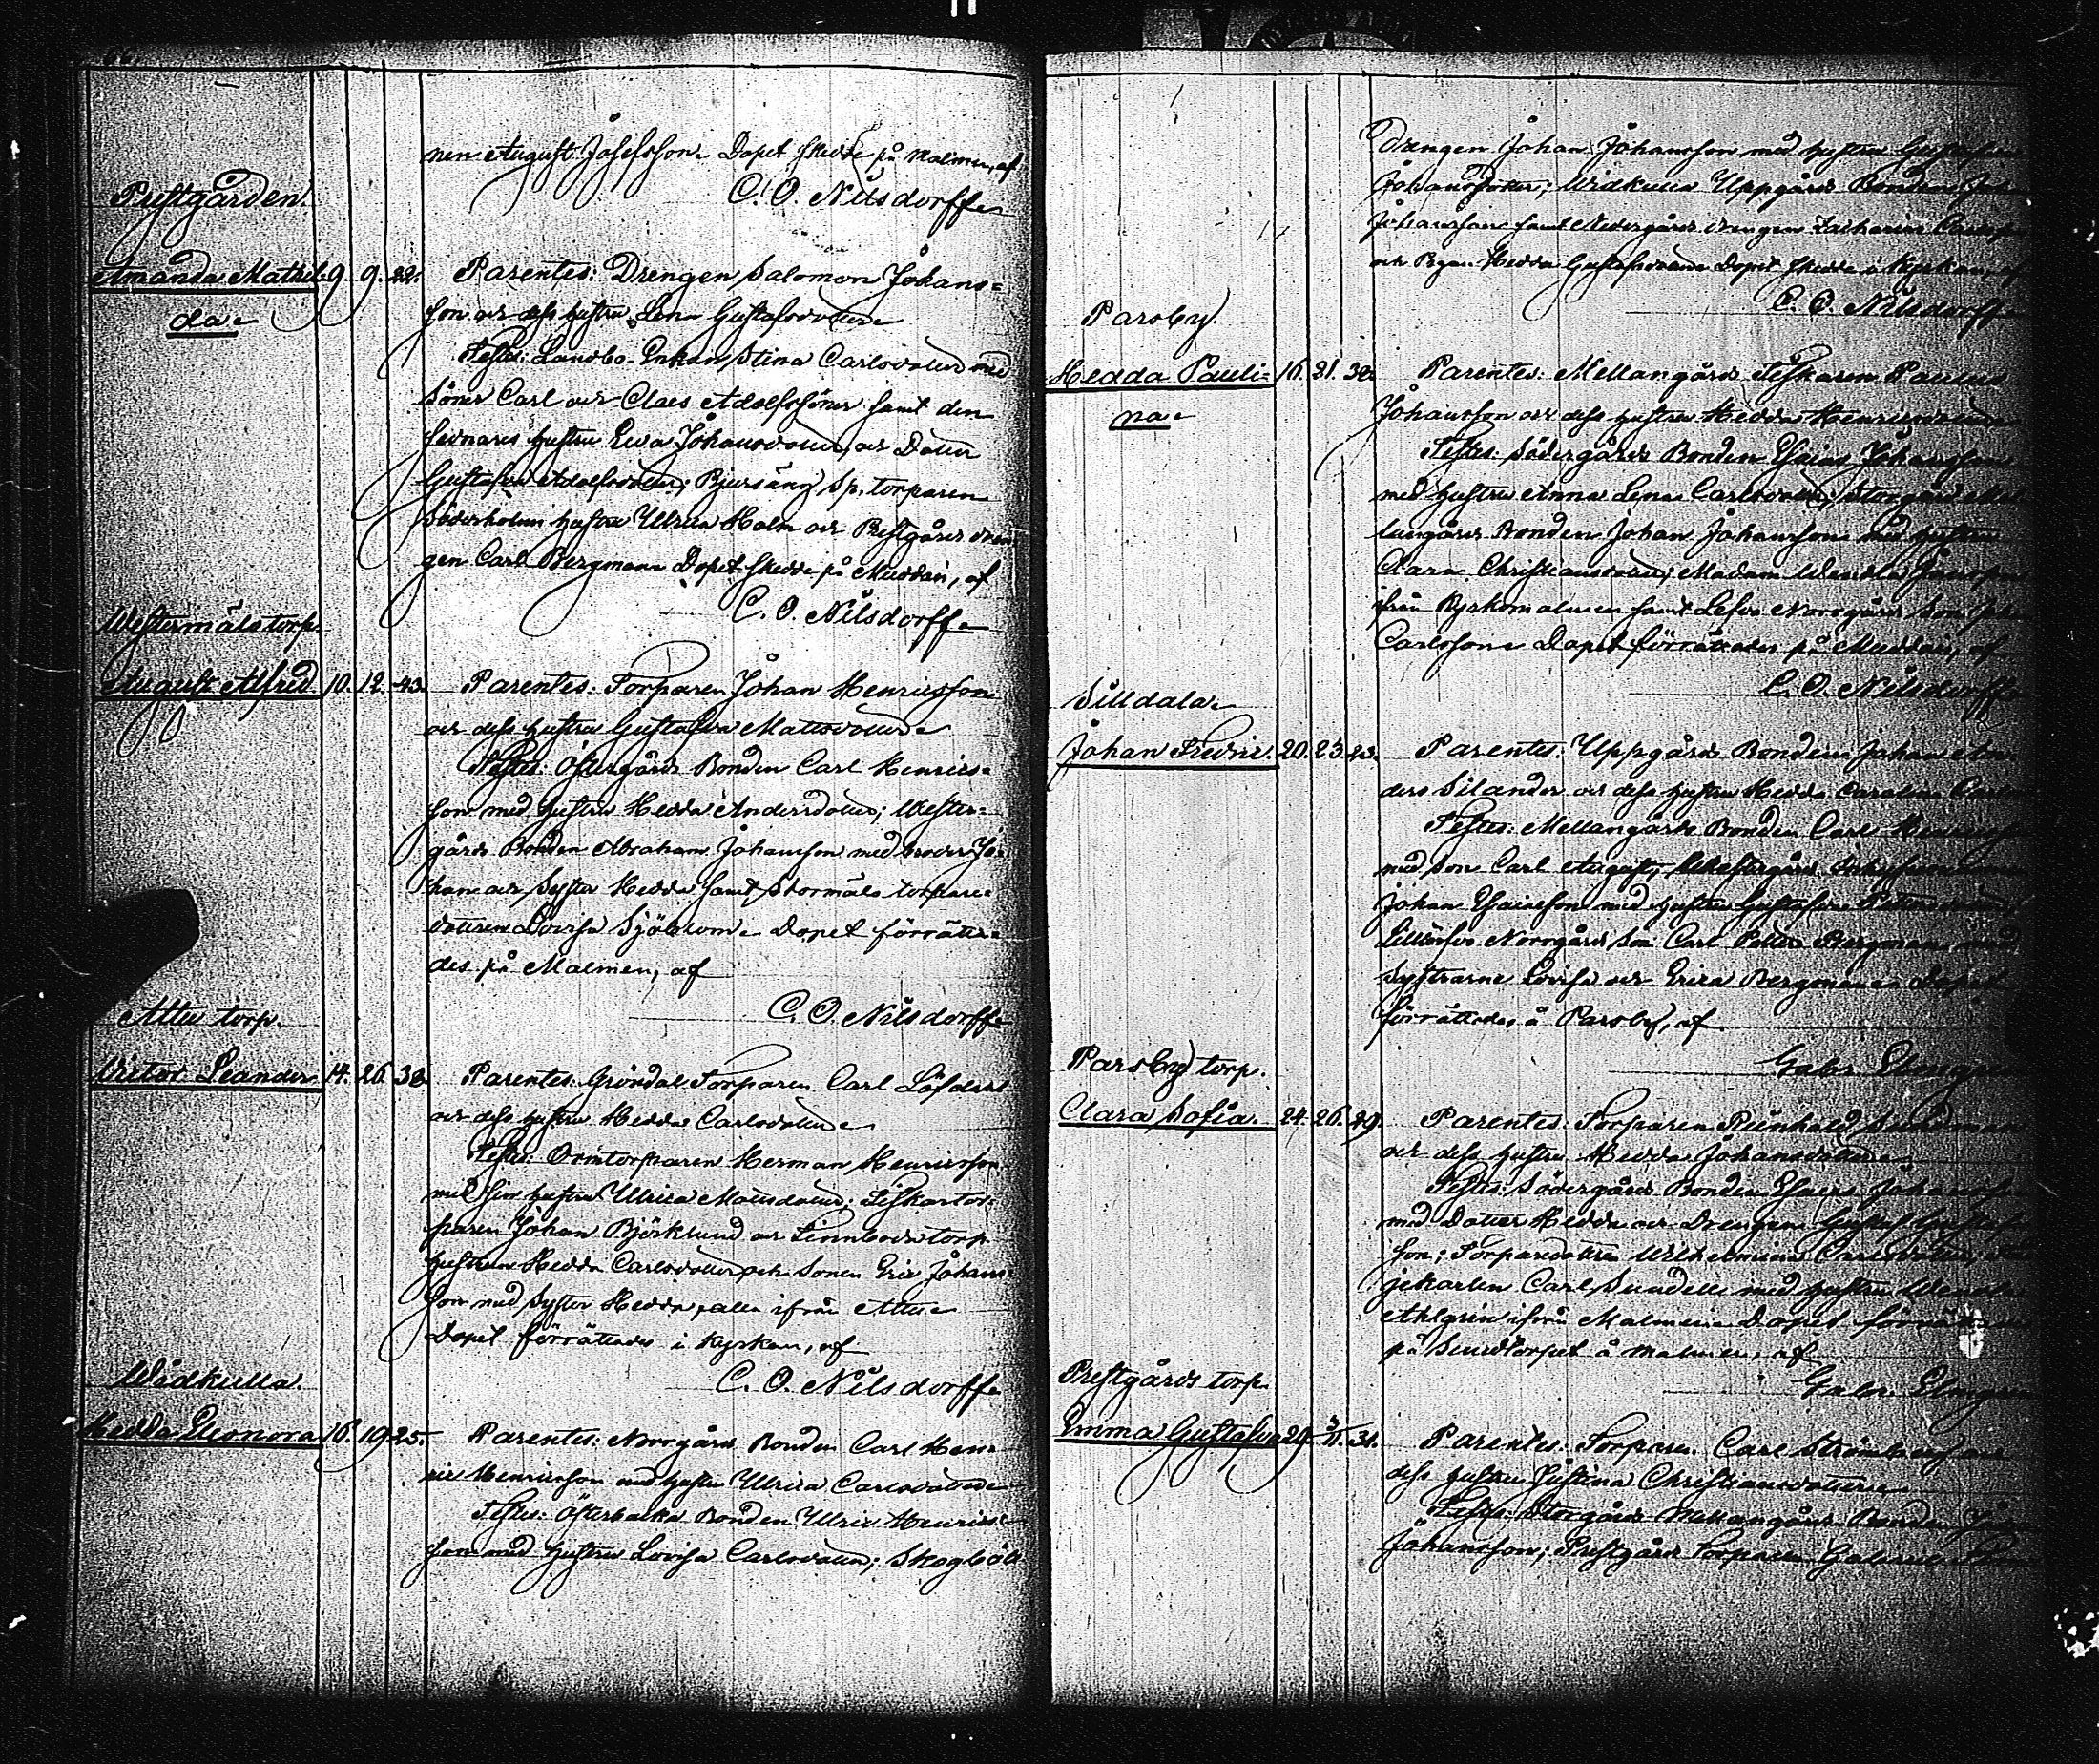 nen August Josefsson. Dopet skedde på Malmen, af
C. O. Nilsdorff
Prestgården.
Amanda Mathil- 9. 9. 22. Parentes: Drengen Salomon Johans=
da son och dess hustru Lena Gustafsdotter
Testes: Landbo-Enkan Stina Carlsdotter med
Söner Carl och Claes Adolfssöner samt den
sednares hustru Eva Johansdotter och Dotter
Gustafva Adolfsdotter; Bjursäng Sp. torparen
Söderholms hustru Ulrica Holm och Prestgårds dren
gen Carl Bergman. Dopet skedde på Muddais, af
C. O. Nilsdorff
Westermälstorp.
August Alfred 10. 12. 43. Parentes: Torparen Johan Henricsson
och dess hustru Gustafva Mattsdotter
Testes: Östergårds Bonden Carl Henrics=
son med hustru Hedda Andersdotter; Wester=
gårds Bonden Abraham Johansson med broder Jo=
han och Syster Hedda samt Stormäls torpare=
dottren Lovisa Sjöblom. Dopet förrätta=
des på Malmen, af
C. O. Nilsdorff
Attu torp.
Victor Leander 14. 26. 38. Parentes: Gröndal Torparen Carl
och dess hustru Hedda Carlsdotter
Testes: Ormtorparen Herman Henricsson
med sin hustru Ulrica Mattsdotter; Fiskartor=
paren Johan Björklund och torp.
hustrun Hedda Carlsdotter och Sonen Eric Johans=
son med Syster Hedda, alla ifrån Attu
Dopet förrättades i kyrkan, af
C. O. Nilsdorff
Wådkulla.
Hedda Eleonora 16. 19. 25. Parentes: Norrgårds Bonden Carl Hen=
ric Henricsson med hustru Ulrica Carlsdotter
Testes: Österbacka Bonden Ulric Henrics=
son med hustru Lovisa Carlsdotter; Skogböle
Drengen Johan Johansson med hustru
Johansdotter; Wådkulla Uppgårds Bonden
Johansson samt Nedergårds drengen Zacharias
och Pigan Hedda Gustafsdotter Dopet skedde i kyrkan, af
C. O. Nilsdorff
Parsby.
Hedda Pauli= 16. 21. 32. Parentes: Mellangårds Fiskaren Paulus
na Johansson och dess hustru Hedda Henricsdotter
Testes: Södergårds Bonden Esaias Johansson
med hustru Anna Lena Carlsdotter; Storgård Mel
langårds Bonden Johan Johansson med hustru
Clara Christiansdotter; Madam
från Kyrkomalmen samt Norrgårds Son
Carlsson. Dopet förrättades på Muddais, af
C. O. Nilsdorff
Silldala.
Johan Fredric. 20. 23. 23. Parentes: Uppgårds Bonden Johan An
ders Silander och dess hustru Hedda Carolina
Testes: Mellangårds Bonden Carl
med Son Carl August; Westergårds
Johan Esaiasson med hustru Gustafva
Norrgårds Son Carl Petter Bergman med
Systrarne Lovisa och Erica Bergman. Dopet
förrättades å Parsby, af
Gabr. Elmgren
Parsby torp.
Clara Sofia. 24. 26. 29. Parentes: Torparen Reinhold
och dess hustru Hedda Johansdotter
Testes: Södergårds Bonden Esaias Johansson
med Dotter Hedda och Drengen Gustaf Gustafs
son; Torparedottren Wilhelmina Carlsdotter,
Carl Sundell med hustru
Ahlgren ifrån Malmen. Dopet förrättades
på å Malmen, af
Gabr. Elmgren
Prestgårds torp.
Emma Gustafva 29. 31. Parentes: Torparen Carl Strömberg och
dess hustru Justina Christiansdotter
Testes: Storgårds Mellangårds Bonden
Johansson; Prestgårds Torparen